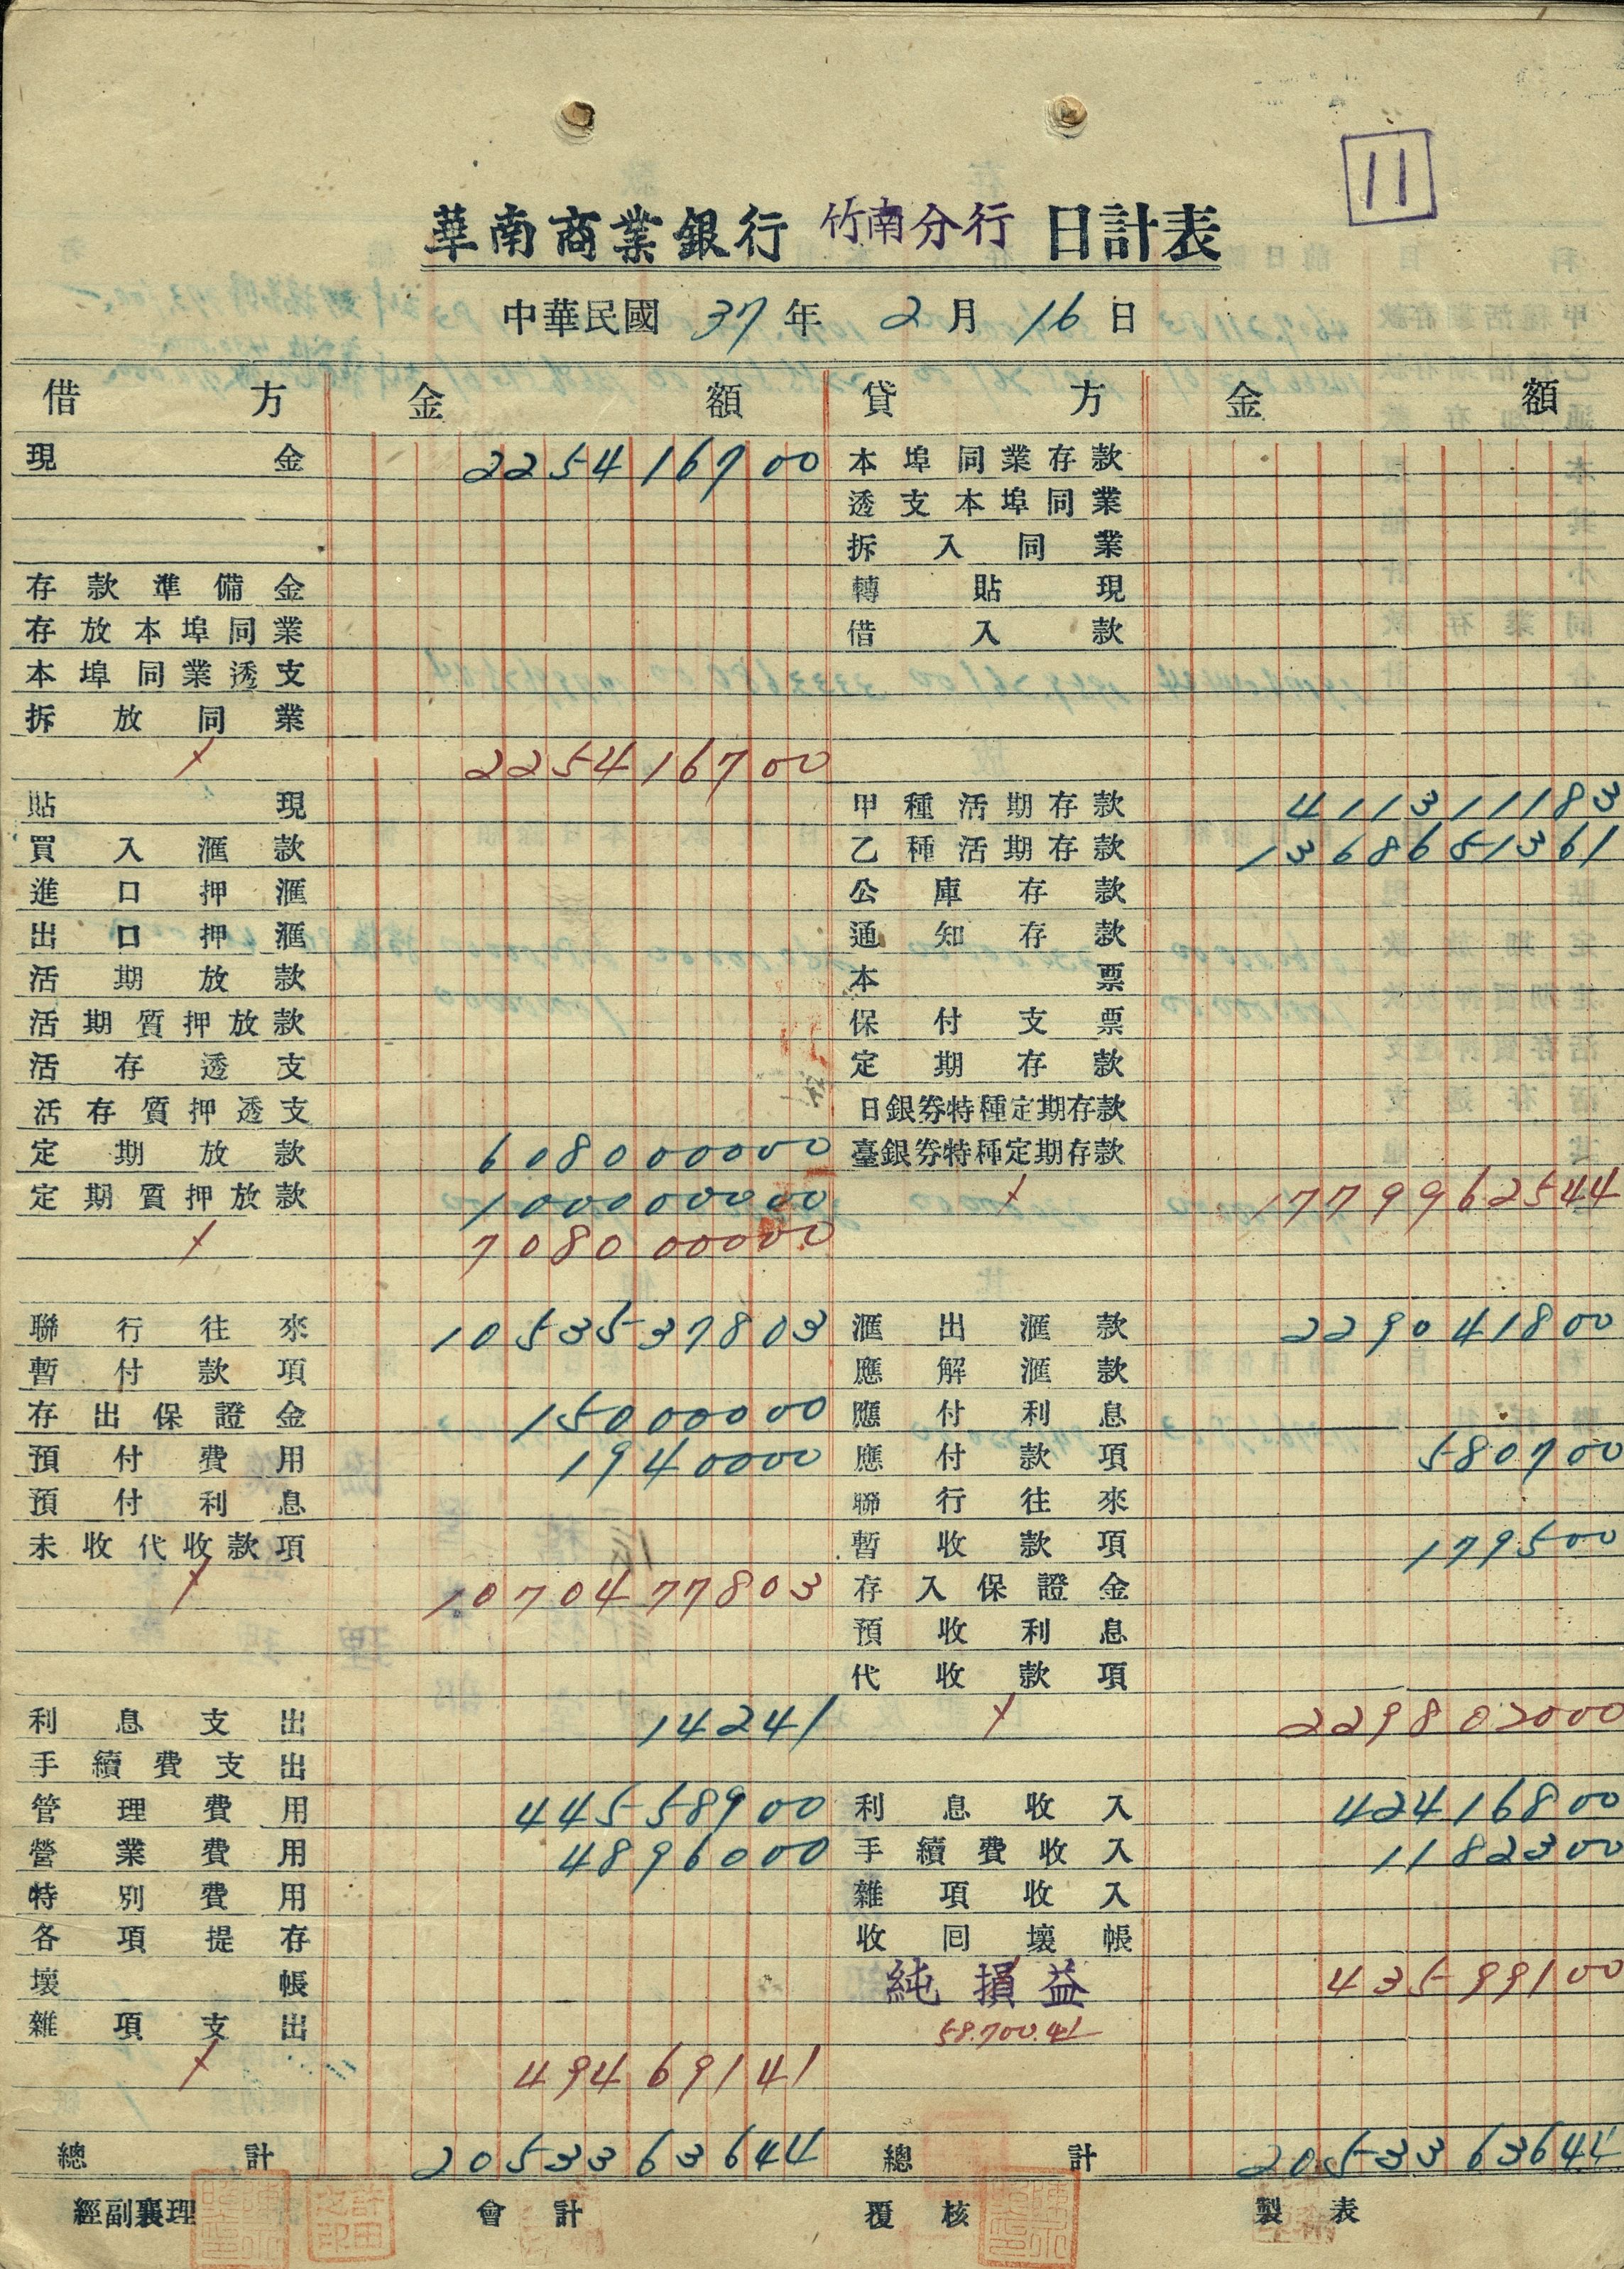 11
華南商業銀行 竹南分行 日計表
中華民國 37 年 2 月 16 日
借方 金額 貸方 金額
現金 225416700 本埠同業存款
透支本埠同業
拆入同業
存款準備金 轉貼現
存放本埠同業 借入款
本埠同業透支
拆放同業
225416700
貼現 甲種活期存款 411311183
買入滙款 乙種活期存款 1368651361
進口押滙 公庫存款
出口押滙 通知存款
活期放款 本票
活期質押放款 保付支票
活存透支 定期存款
活存質押透支 日銀券特種定期存款
定期放款 608000000 臺銀券特種定期存款
定期質押放款 100000000 1779962544
708000000
聯行往來 1053537803 滙出滙款 229041800
暫付款項 應解滙款
存出保證金 15000000 應付利息
預付費用 1940000 應付款項 580700
預付利息 聯行往來
未收代收款項 暫收款項 179500
1070477803 存入保證金
預收利息
代收款項
利息支出 14241 229802000
手續費支出
管理費用 44558900 利息收入 42416800
營業費用 4896000 手續費收入 1182300
特別費用 雜項收入
各項提存 收囘壞帳
壞帳 純損益 43599100
雜項支出 58.700.41
49469141
總計 2053363644 總計 2053363644
經副襄理 會計 覆核 製表